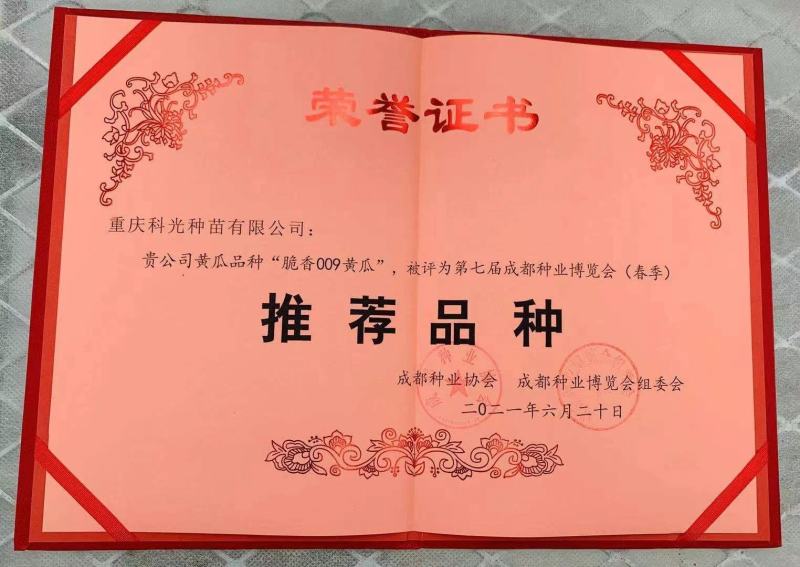 荣誉证书
重庆科光种苗有限公司：
贵公司黄瓜品种“脆香009黄瓜”，被评为第七届成都种业博览会（春季）
推荐品种
成都种业协会 成都种业博览会组委会
二〇二一年六月二十日